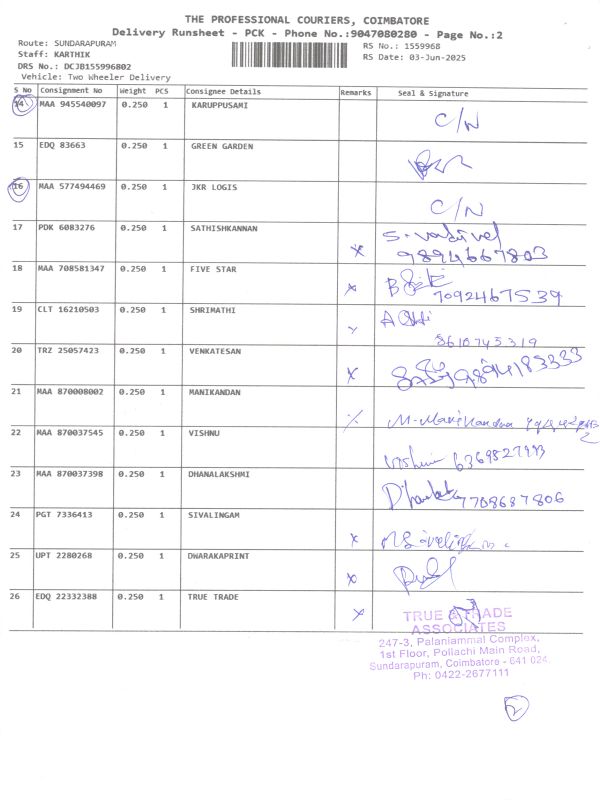 THE PROFESSIONAL COURIERS, COIMBATORE
Delivery Runsheet - PCK - Phone No.:9047080280 - Page No.:2
Route: SUNDARAPURAM
RS No.: 1559968
Staff: KARTHIK
RS Date: 03-Jun-2025
DRS No.: DCJB155996802
Vehicle: Two Wheeler Delivery
S No Consignment No Weight PCS Consignee Details Remarks Seal & Signature
14 MAA 945540097 0.250 1 KARUPPUSAMI C/N
15 EDQ 83663 0.250 1 GREEN GARDEN
16 MAA 577494469 0.250 1 JKR LOGIS C/N
17 PDK 6083276 0.250 1 SATHISHKANNAN
9894667803
18 MAA 708581347 0.250 1 FIVE STAR
7092467539
19 CLT 16210503 0.250 1 SHRIMATHI
8610745319
20 TRZ 25057423 0.250 1 VENKATESAN
9894183333
21 MAA 870008002 0.250 1 MANIKANDAN
M-Manikandan
22 MAA 870037545 0.250 1 VISHNU
Vishnu
23 MAA 870037398 0.250 1 DHANALAKSHMI
7708687806
24 PGT 7336413 0.250 1 SIVALINGAM
25 UPT 2280268 0.250 1 DWARAKAPRINT
26 EDQ 22332388 0.250 1 TRUE TRADE
TRUE TRADE
ASSOCIATES
247-3, Palaniammal Complex,
1st Floor, Pollachi Main Road,
Sundarapuram, Coimbatore - 641 024.
Ph: 0422-2677111
2